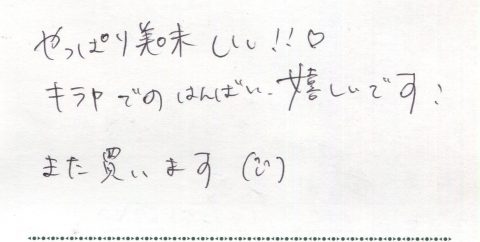 やっぱり美味しい!!♡
キラヤでのはんばい、嬉しいです!
また買います(¨)